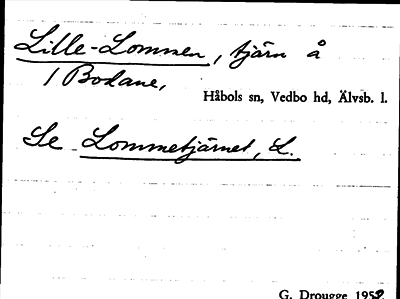 Lille-Lommen, tjärn å
/ Bodane,
Håbols sn, Vedbo hd, Älvsb. l.
Se Lommetjärnet, L.
G. Drougge 1952